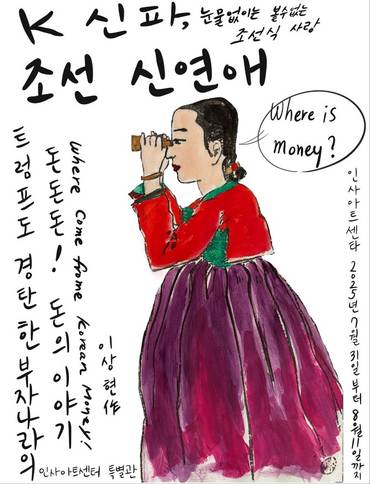 K 신파, 눈물없이는 볼수없는
조선식 사랑
조선 신연애
Where is
money?
트럼프도 경탄한 부자나라의
돈돈돈! 돈의 이야기
Where come frome Korean Money!
이상현作
인사아트센타 2025년 7월 31일 부터 8월 11일까지
인사아트센터 특별관